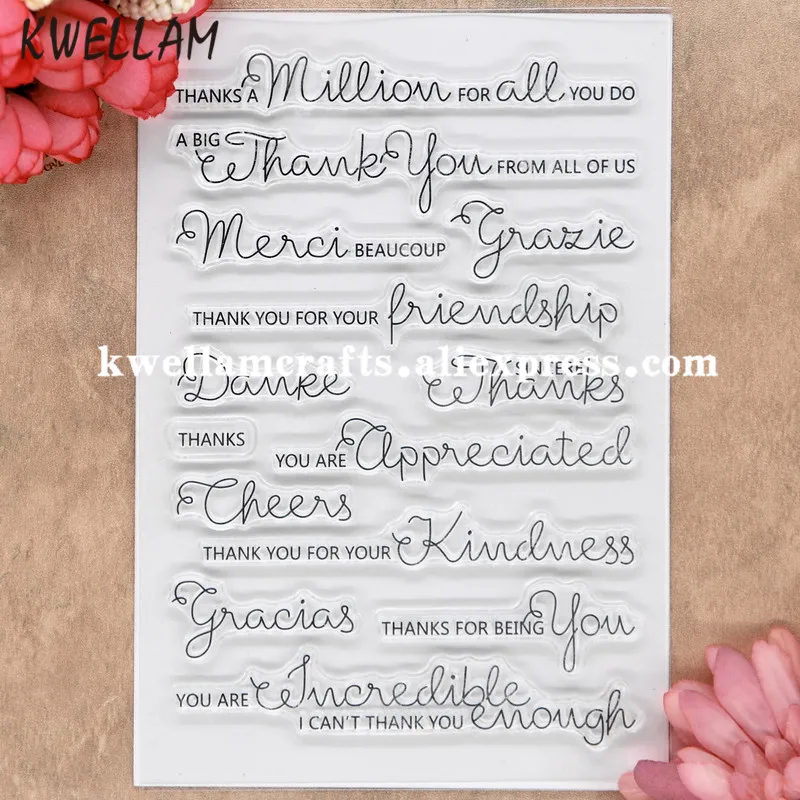 KWELLAM
THANKS A Million FOR all YOU DO
A BIG Thank You FROM ALL OF US
Merci BEAUCOUP Grazie
THANK YOU FOR YOUR friendship
kwellamcrafts.aliexpress.com
Danke SINCERE Thanks
THANKS
YOU ARE Appreciated
Cheers
THANK YOU FOR YOUR Kindness
Gracias THANKS FOR BEING You
YOU ARE Incredible
I CAN'T THANK YOU enough